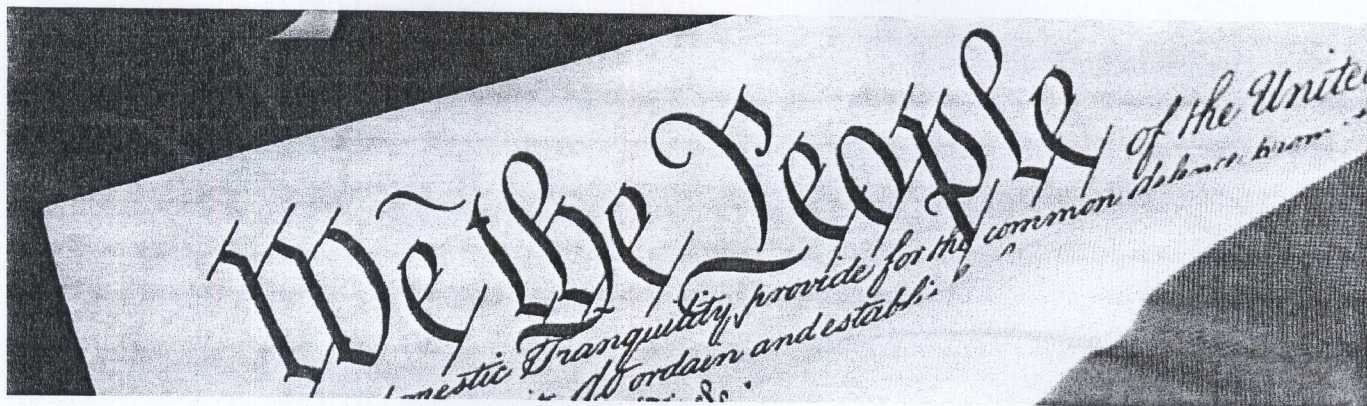 We the People of the Unite
omestic Tranquility, provide for the common defence, prom
do ordain and establis